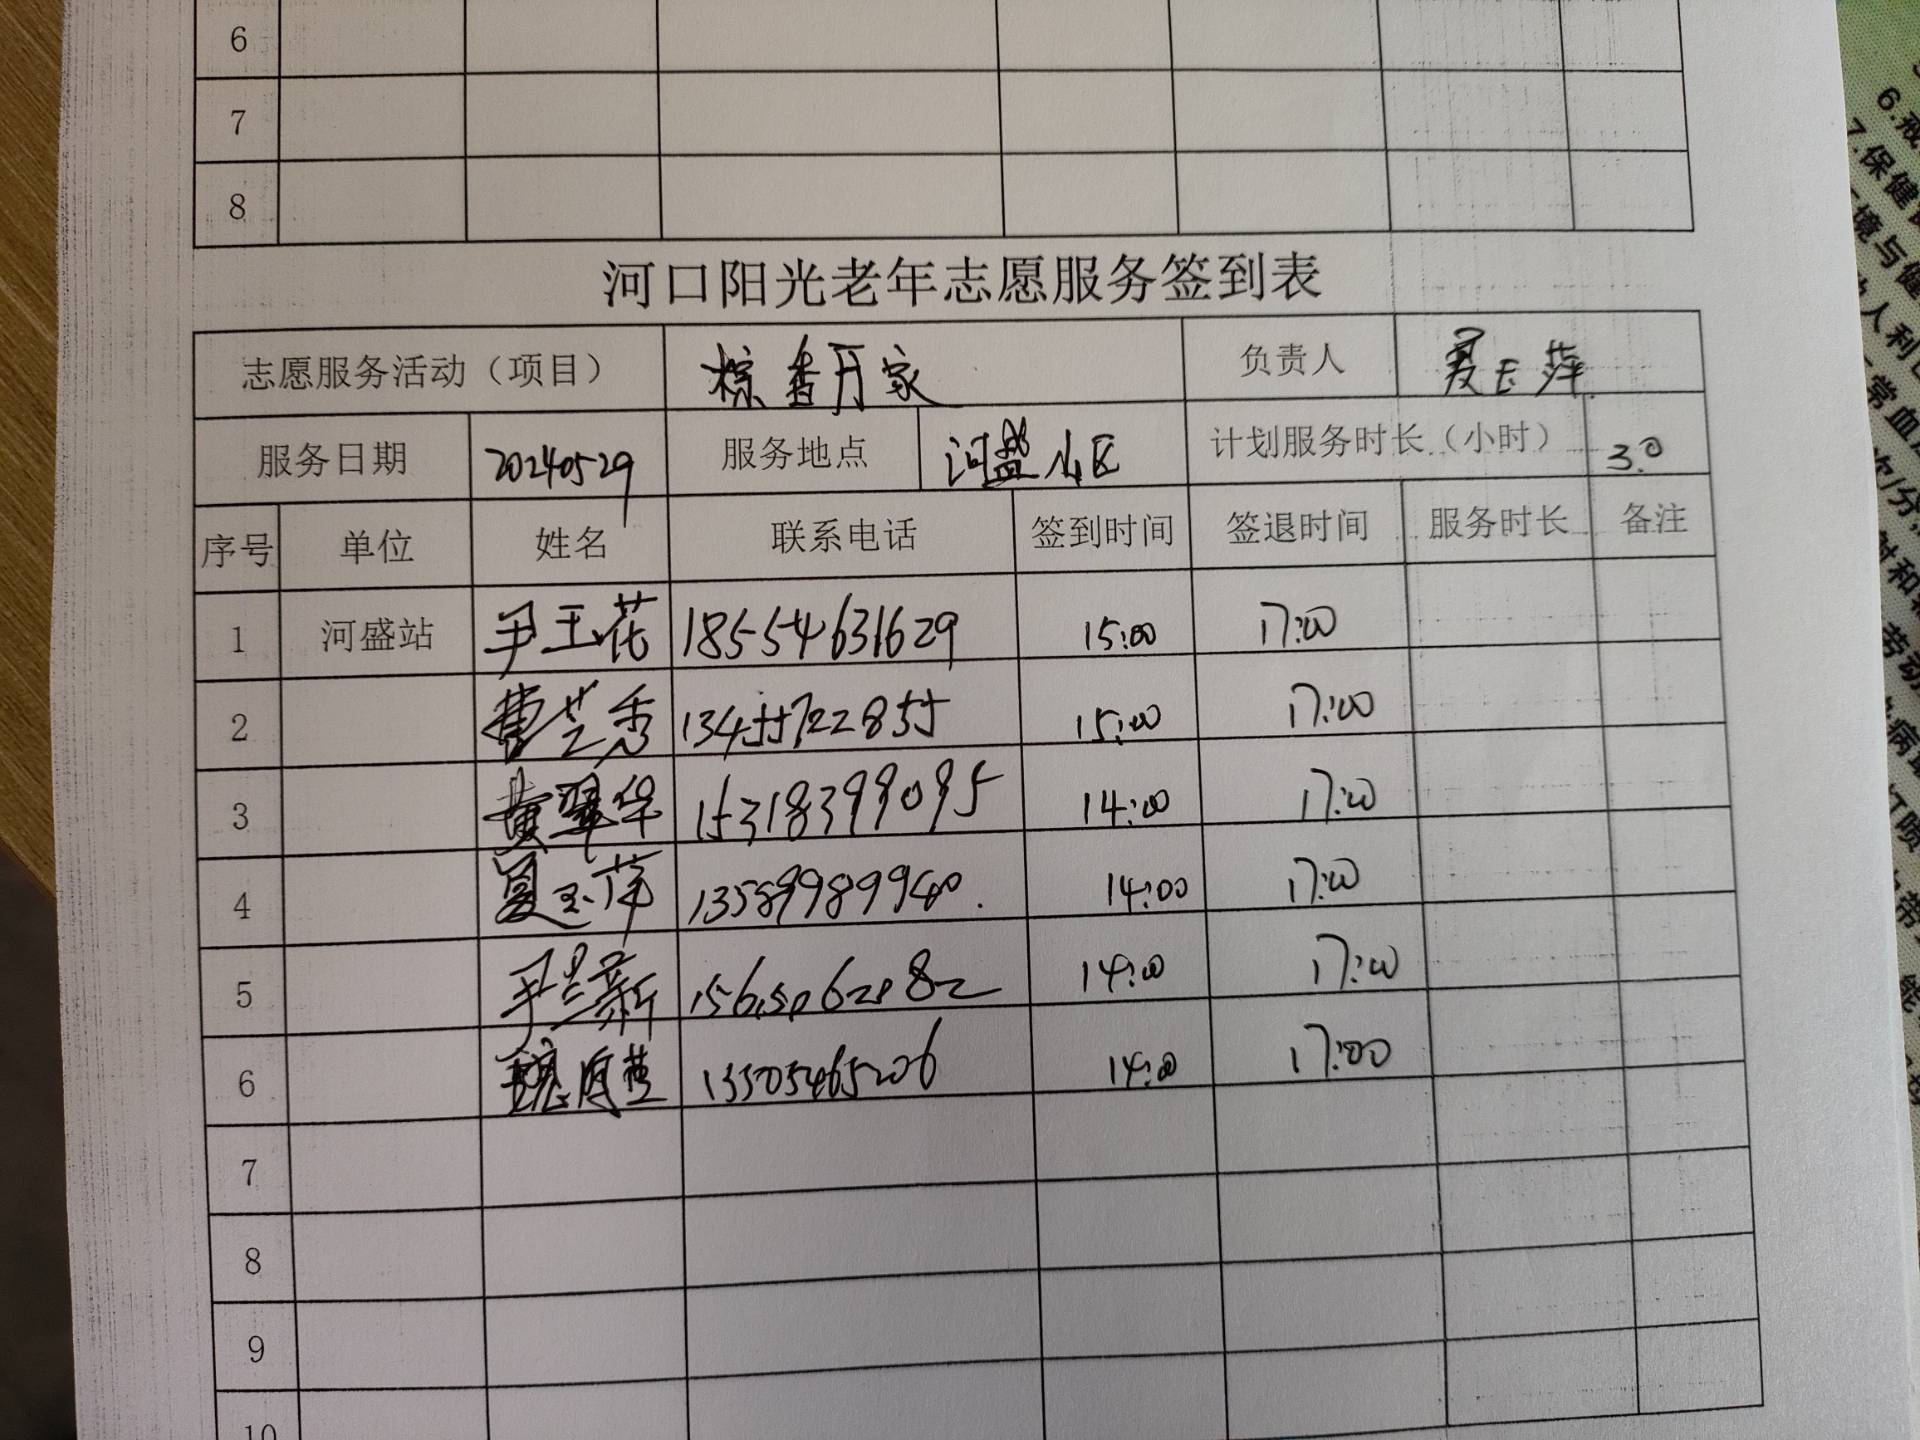 6
7
8
河口阳光老年志愿服务签到表
志愿服务活动（项目） 粽香万家 负责人 夏玉萍
服务日期 20240529 服务地点 河盛小区 计划服务时长（小时） 3.0
序号 单位 姓名 联系电话 签到时间 签退时间 服务时长 备注
1 河盛站 尹玉花 18554631629 15:00 17:00
2 曹芝秀 13455722855 15:00 17:00
3 黄翠华 15318399095 14:00 17:00
4 夏玉萍 13589989940 14:00 17:00
5 尹兰新 14:00 17:00
6 13505465206 14:00 17:00
7
8
9
10
6.戒
7.保健
境与健
人利
常血
次/分
时和
劳动
病